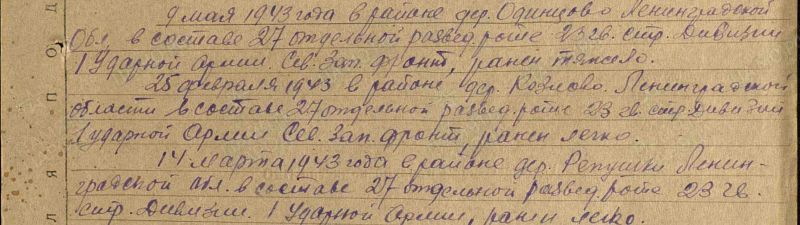 9 мая 1943 года в районе дер. Одинцово Ленинградской
Обл. в составе 27 отдельной развед. роте 23 гв. стр. Дивизии
1 Ударной Армии. Сев. Зап. фронт, ранен тяжело.
25 февраля 1943 в районе дер. Козлово. Ленинградской
области в составе 27 отдельной развед. роте 23 гв. стр. Дивизии
1 ударной Армии Сев. Зап. фронт, ранен легко.
14 марта 1943 года в районе дер. Репушки Ленин-
градской обл. в составе 27 отдельной развед роте 23 гв.
стр. Дивизии. 1 Ударной Армии, ранен легко.
Л Я П О Д